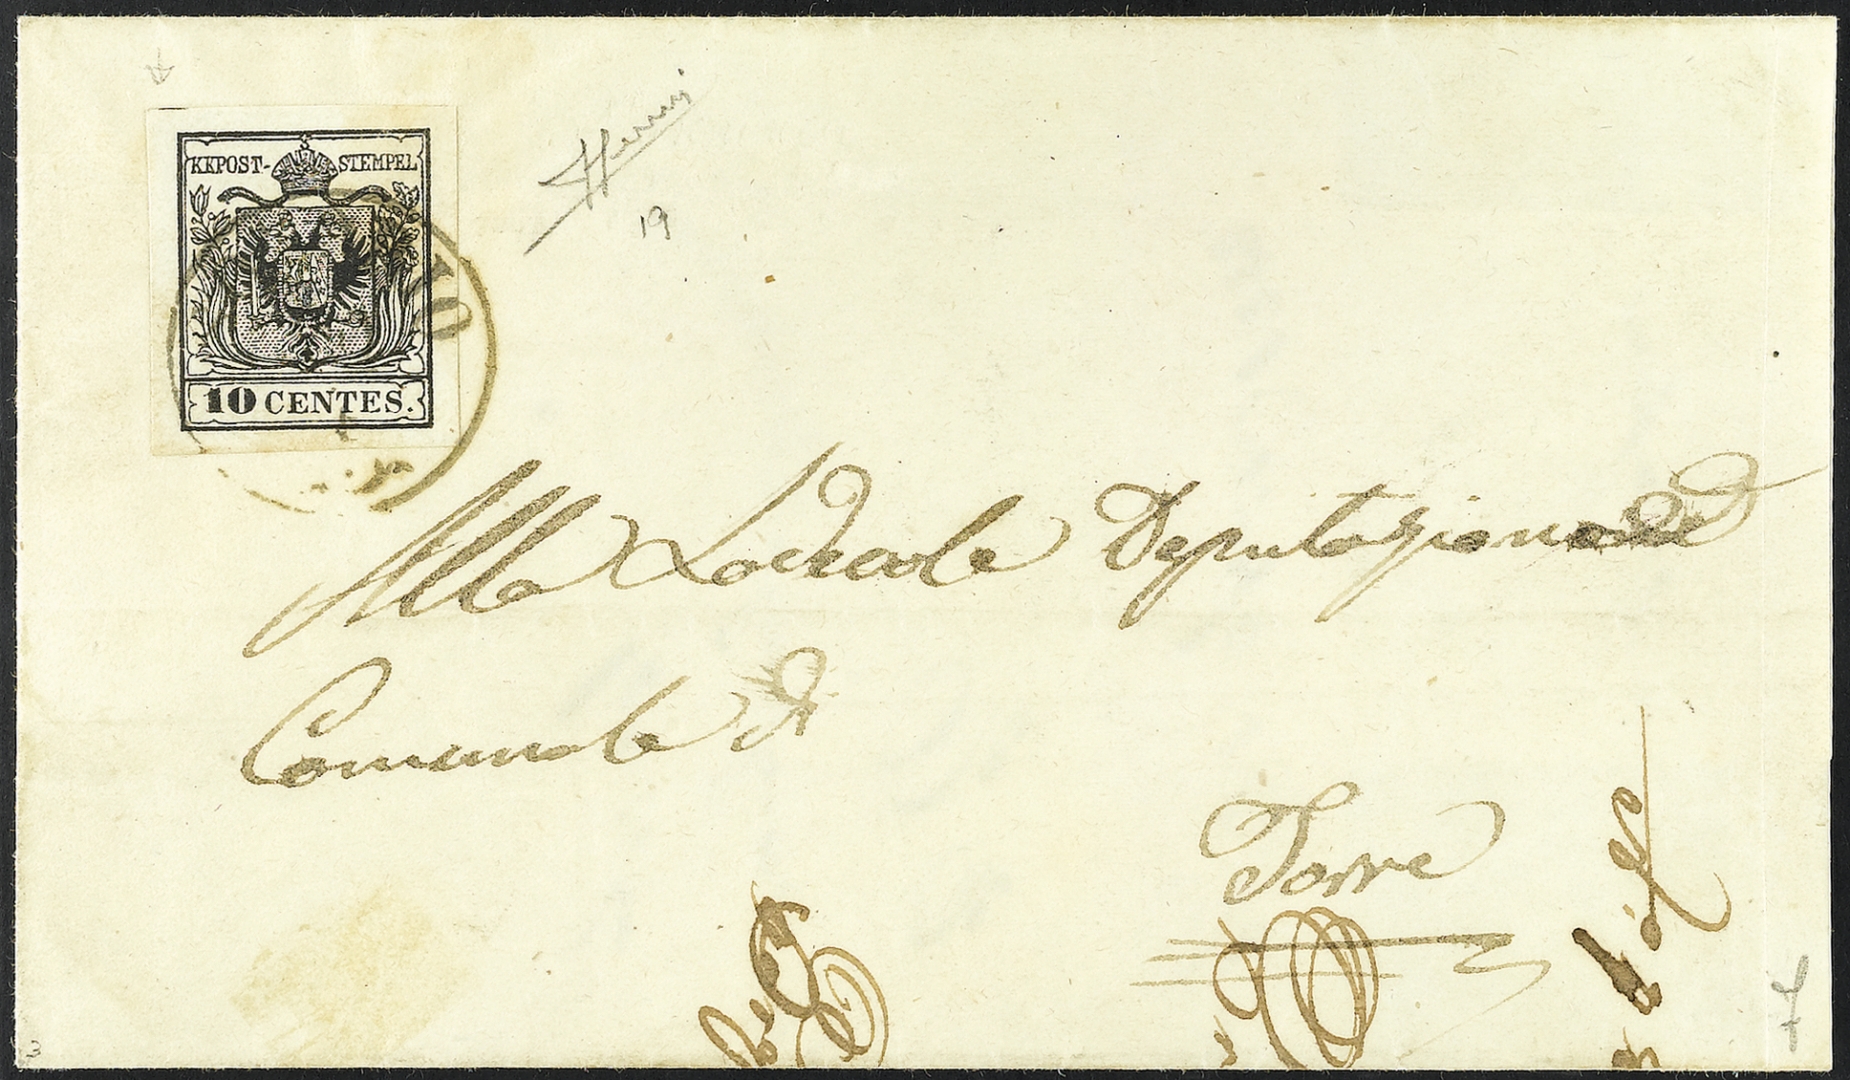 KKPOST-STEMPEL
10 CENTES.
IO
19
Alla Lodevole Deputazione
Comunale di
Torre
7
3